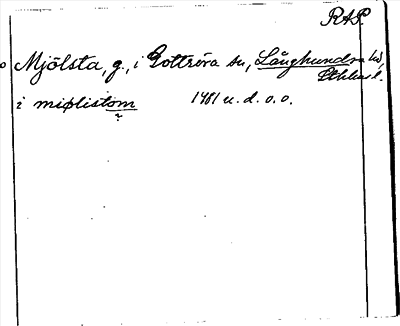 RAP.
Mjölsta, g., i Gottröra sn, Långhundra hd,
Sthlms l.
i miplistom 1481 u. d. o. o.
?